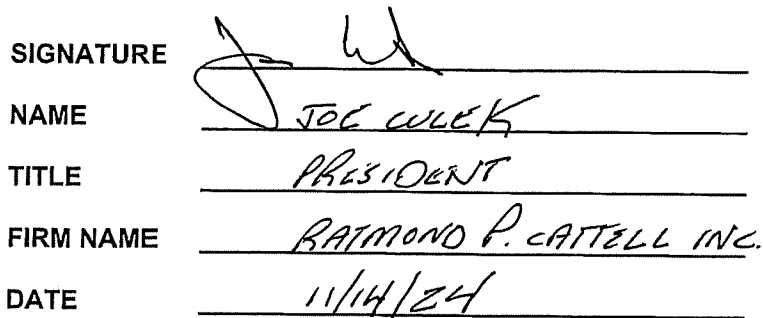 SIGNATURE
NAME JOE CULEK
TITLE PRESIDENT
FIRM NAME RAYMOND P. CATTELL INC.
DATE 11/14/24